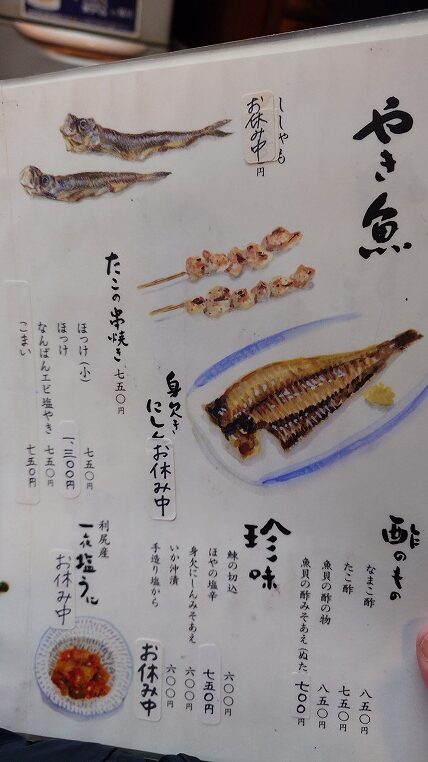 やき魚
ししゃも お休み中 円
たこの串焼き 七五〇円
身欠きにしん お休み中
ほっけ（小） 七五〇円
ほっけ 一、三〇〇円
なんばんエビ塩やき 七五〇円
こまい 七五〇円
酢のもの
なまこ酢 八五〇円
たこ酢 七五〇円
魚貝の酢の物 八五〇円
魚貝の酢みそあえ（ぬた 七〇〇円
珍味
鰊の切込 六〇〇円
ほやの塩辛 七五〇円
身欠にしんみそあえ 六〇〇円
いか沖漬 六〇〇円
手造り塩から お休み中
利尻産
一夜塩うに お休み中